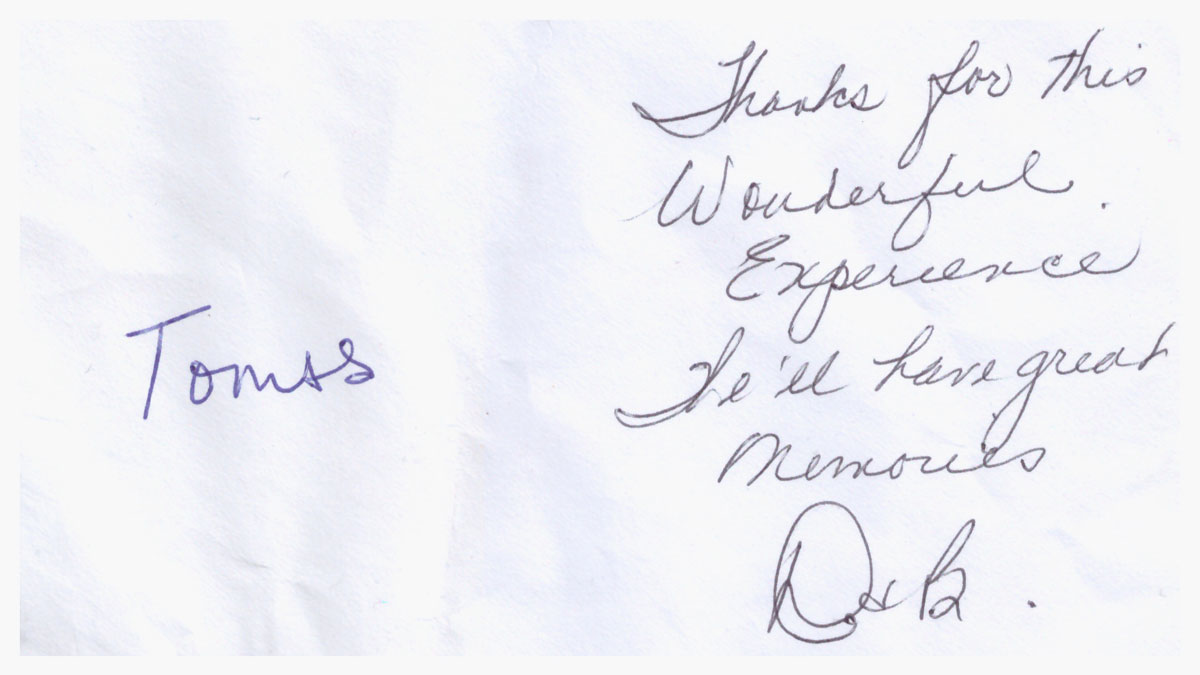 Tomas
Thanks for this
Wonderful.
Experience
We'll have great
Memories
D & B.